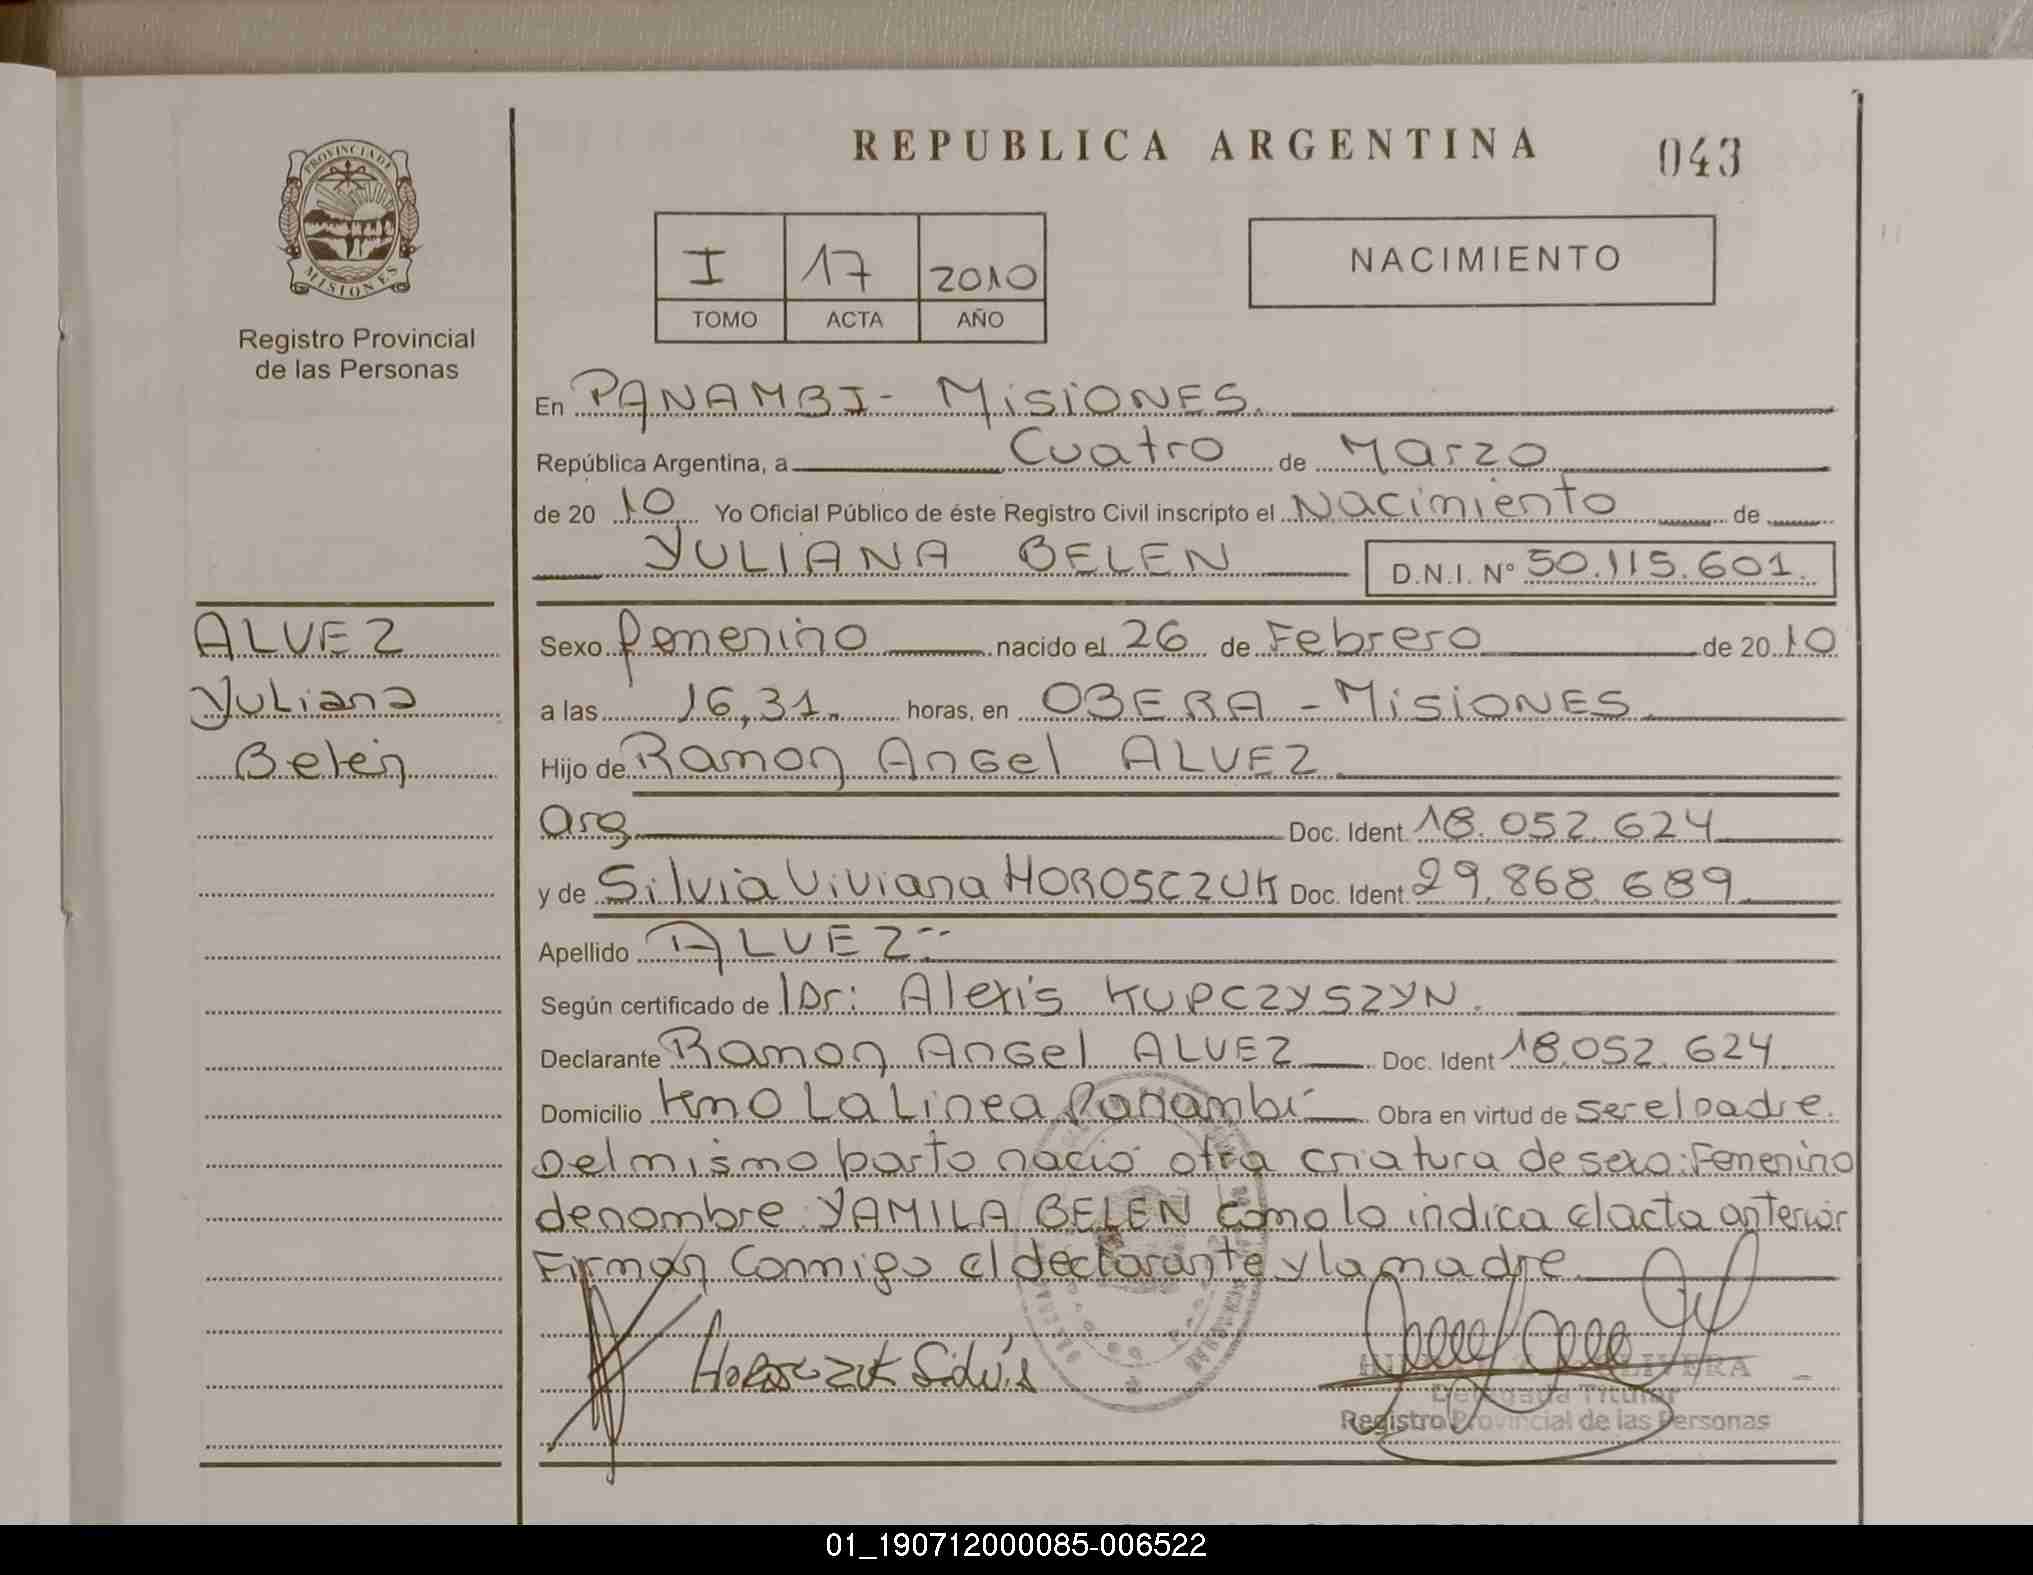 REPUBLICA ARGENTINA
043
PROVINCIA DE
MISIONES
Registro Provincial
de las Personas
I 17 2010
TOMO ACTA AÑO
NACIMIENTO
En PANAMBI - MISIONES.
República Argentina, a Cuatro de Marzo
de 20 10 Yo Oficial Público de éste Registro Civil inscripto el Nacimiento de
YULIANA BELEN D.N.I. N° 50.115.601.
ALVEZ
Yuliana
Belén
Sexo femenino nacido el 26 de Febrero de 20 10
a las 16,31. horas, en OBERA - MISIONES.
Hijo de Ramon Angel ALVEZ
Arg Doc. Ident. 18.052.624
y de Silvia Viviana HOROSCZUK Doc. Ident. 29.868.689
Apellido ALVEZ
Según certificado de Dr: Alexis KUPCZYSZYN.
Declarante Ramon Angel ALVEZ Doc. Ident 18.052.624
Domicilio Km 0 La Linea Panambí Obra en virtud de ser el padre.
Del mismo parto nació otra criatura de sexo: Femenino
de nombre YAMILA BELEN como lo indica el acta anterior
Firman Conmigo el declarante y la madre
HOROSCZUK Silvia
Delegada Titular
Registro Provincial de las Personas
01_190712000085-006522